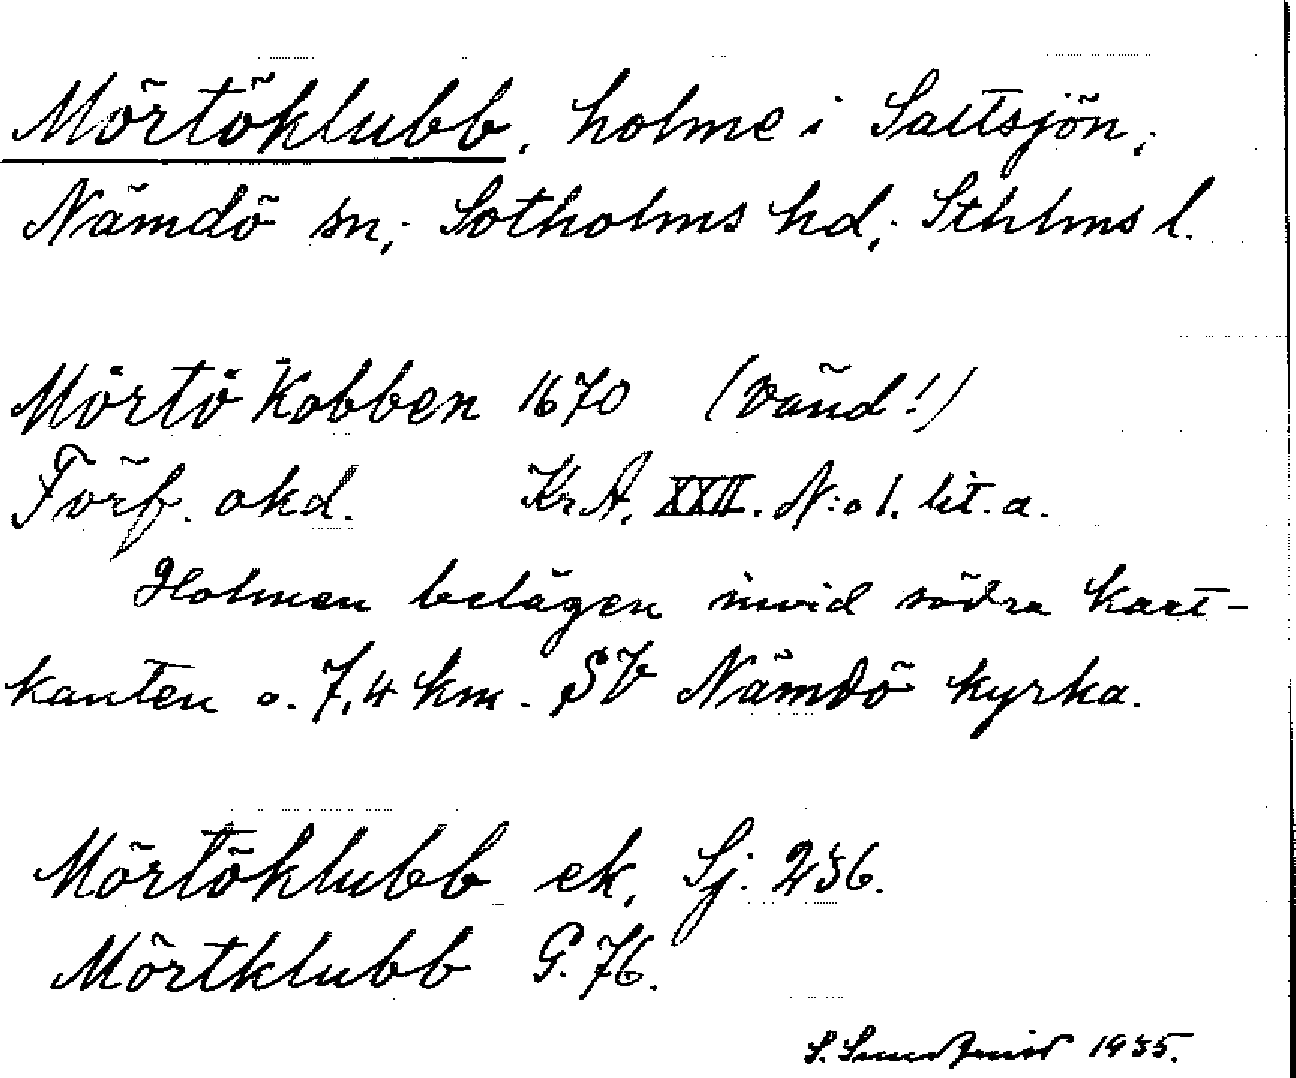 Mörtöklubb, holme i Saltsjön,
Nämdö sn, Sotholms hd, Sthlms l.
Mörtö Kobben 1670 (Vänd!)
Förf. okd. KrA, XXII. N:o 1. lit. a.
Holmen belägen invid södra kart-
kanten o. 7,4 km. SV Nämdö kyrka.
Mörtöklubb ek, Sj. 236.
Mörtklubb G. 76.
S. 1935.